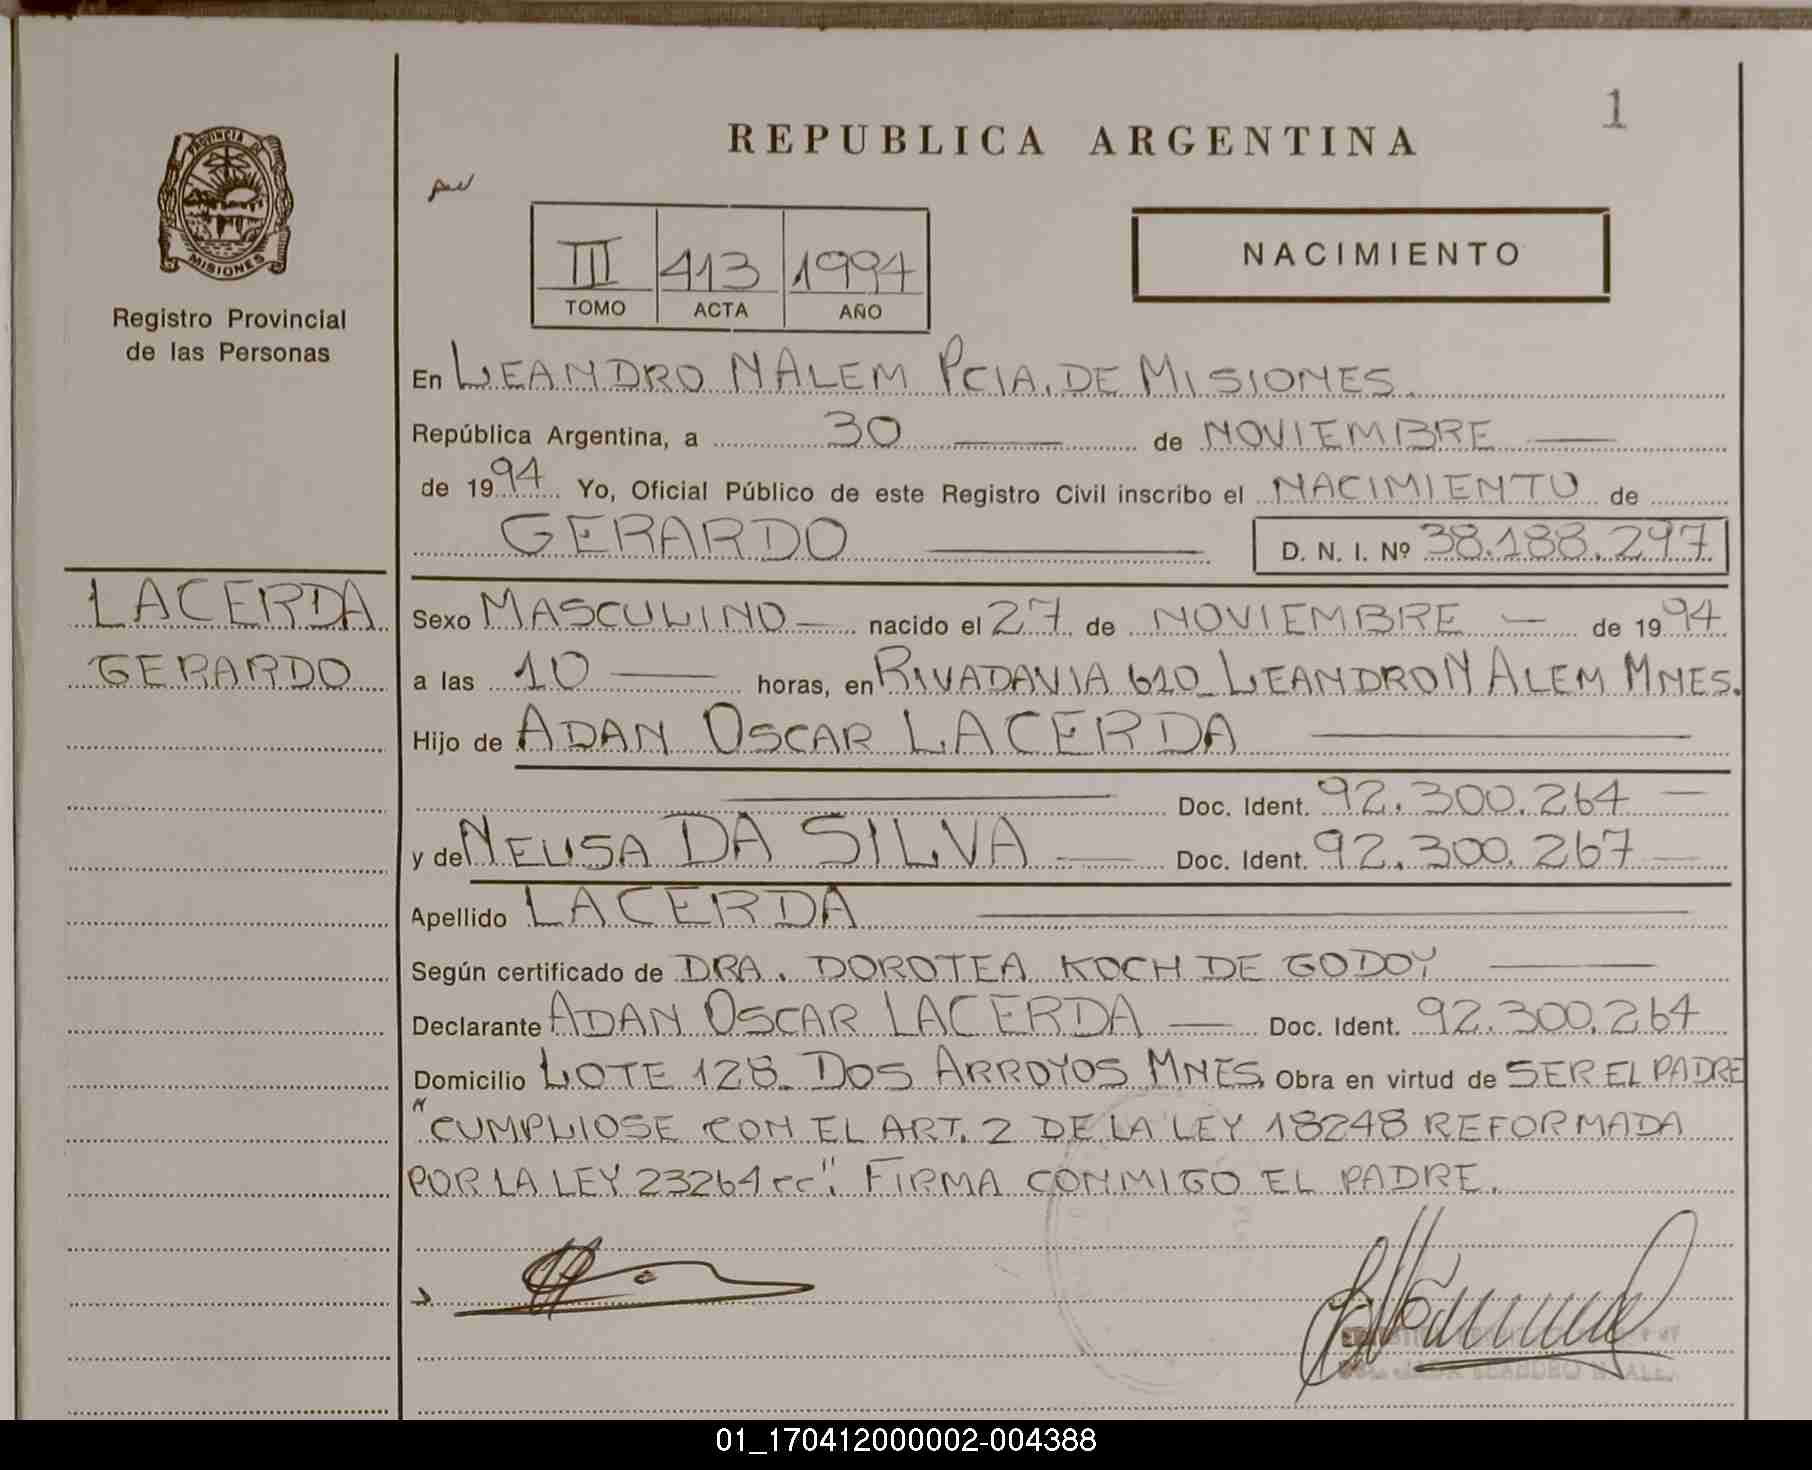 1
REPUBLICA ARGENTINA
PROVINCIA DE
MISIONES
Registro Provincial
de las Personas
III 413 1994
TOMO ACTA AÑO
NACIMIENTO
En LEANDRO N ALEM PCIA. DE MISIONES.
República Argentina, a 30 de NOVIEMBRE
de 1994 Yo, Oficial Público de este Registro Civil inscribo el NACIMIENTO de
GERARDO D. N. I. Nº 38.188.297
LACERDA
GERARDO
Sexo MASCULINO nacido el 27 de NOVIEMBRE de 1994
a las 10 horas, en RIVADAVIA 610_ LEANDRO N ALEM MNES.
Hijo de ADAN OSCAR LACERDA
Doc. Ident. 92.300.264
y de NEUSA DA SILVA Doc. Ident. 92.300.267
Apellido LACERDA
Según certificado de DRA. DOROTEA KOCH DE GODOY
Declarante ADAN OSCAR LACERDA Doc. Ident. 92.300.264
Domicilio LOTE 128_ DOS ARROYOS MNES. Obra en virtud de SER EL PADRE
"CUMPLIOSE CON EL ART. 2 DE LA LEY 18248 REFORMADA
POR LA LEY 23264 cc". FIRMA CONMIGO EL PADRE.
01_170412000002-004388